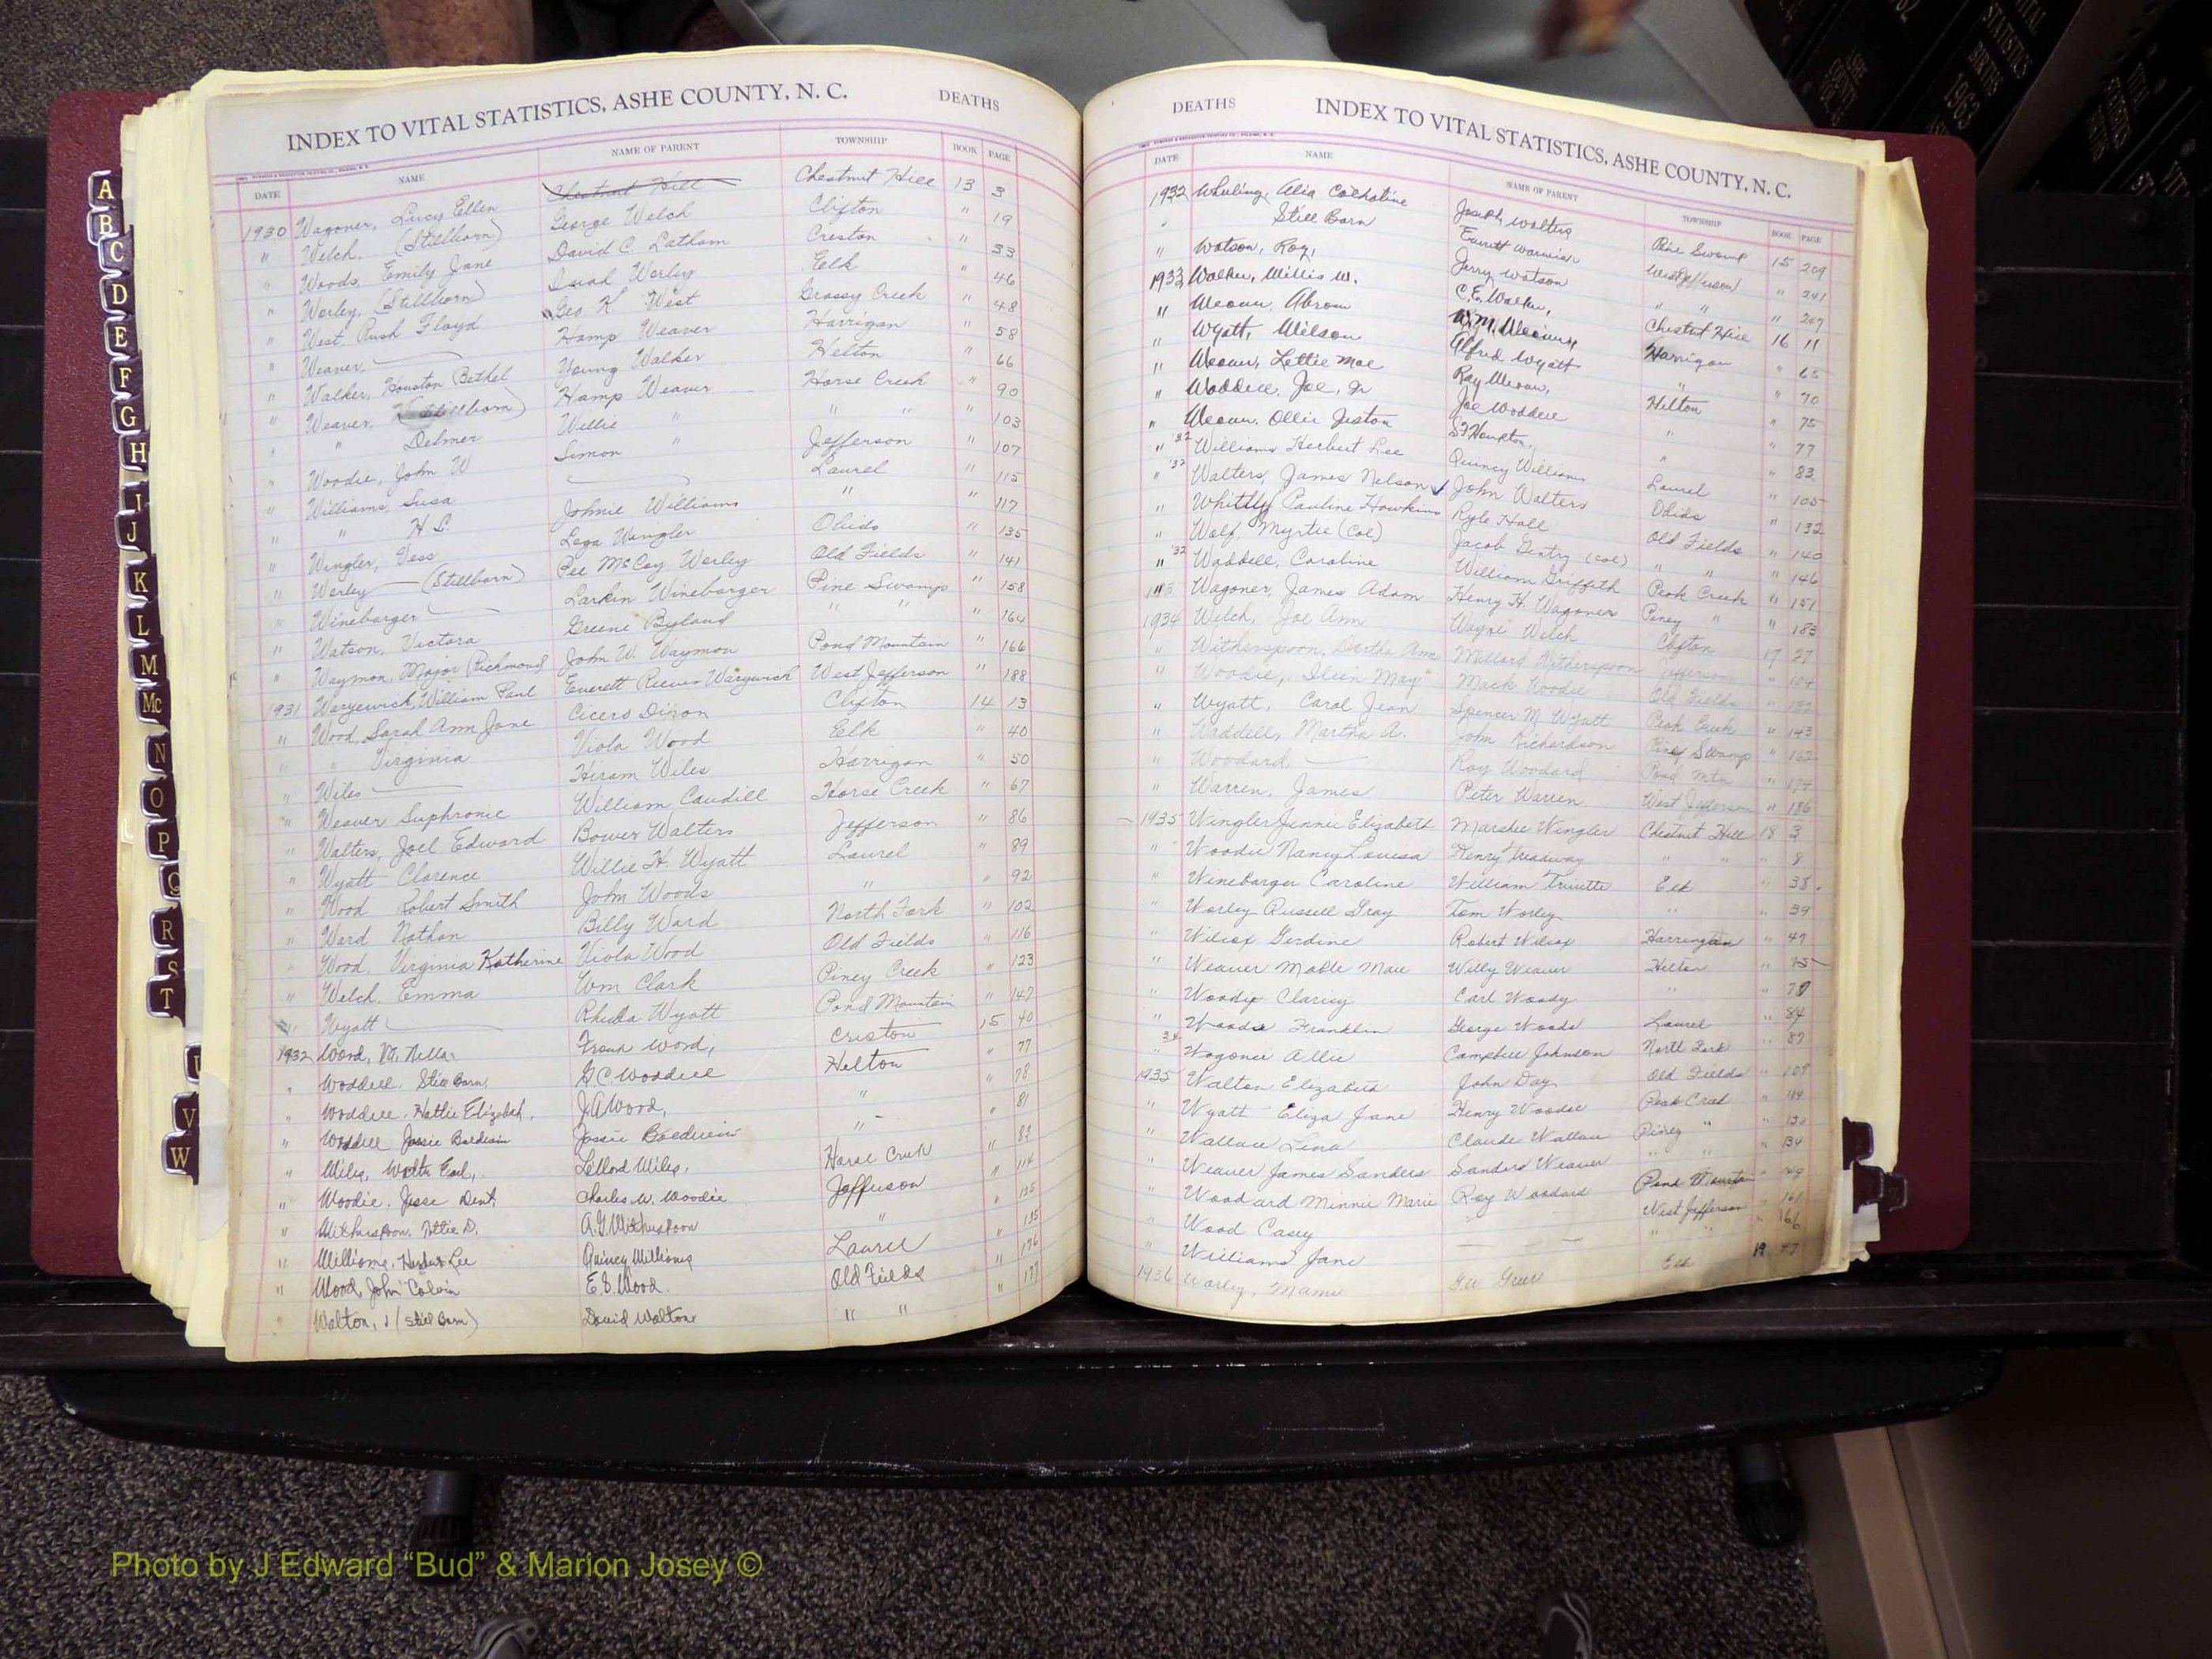 INDEX TO VITAL STATISTICS, ASHE COUNTY, N. C. DEATHS
DATE NAME NAME OF PARENT TOWNSHIP BOOK PAGE
Chestnut Hill Chestnut Hill 13 3
1930 Wagoner, Lucy Ellen George Welch Clifton " 19
" Welch, (Stillborn) David C. Latham Creston " 33
" Woods, Emily Jane Worley Elk " 46
" Worley, (Stillborn) Geo K West Grassy Creek " 48
" West, Rush Floyd Hamp Weaver Harrigan " 58
" Weaver, Young Walker Helton " 66
" Walker, Houston Bethel Hamp Weaver Horse Creek " 90
" Weaver, (Stillborn) Willie " " " " 103
" " Delmer Simon " Jefferson " 107
" Woodie, John W Laurel " 115
" Williams, Susa Johnie Williams " 117
" " H L. Wingler Obids " 135
" Wingler, Vess Pee McCoy Worley Old Fields " 141
" Worley (Stillborn) Larkin Winebarger Pine Swamp " 158
" Winebarger Greene Byland " " " 164
" Watson, Victora John W. Waymon Pond Mountain " 166
" Waymon, Major Richmond Everett Reeves Warywick West Jefferson " 188
1931 Warywick, William Paul Cicero Dixon Clifton 14 13
" Wood, Sarah Ann Jane Viola Wood Elk " 40
" " Virginia Hiram Wiles Harrigan " 50
" Wiles William Caudill Horse Creek " 67
" Weaver Suphronie Bower Walters Jefferson " 86
" Walters, Joel Edward Willie H. Wyatt Laurel " 89
" Wyatt Clarence John Woods " " 92
" Wood Robert Smith Billy Ward North Fork " 102
" Ward Nathan Viola Wood Old Fields " 116
" Wood, Virginia Katherine Wm Clark Piney Creek " 123
" Welch, Emma Rhuda Wyatt Pond Mountain " 147
" Wyatt Word, Criston 15 40
1932 Word, G.C. Woddell Helton " 77
" Woddell, Still Born J.A. Wood, " " 78
" Woddell, Hattie Elizabeh, " " 81
" Woddell Jessie Baldwin Horse Creek " 83
" Miles, Walter Earl, Miles, Jefferson " 114
" Woodie, Jesse Dent, Charles W. Woodie "
" Witherspoon, A.G. Witherspoon Laurel " 135
" Williams, Lee Quincy Williams Old Fields " 176
" Wood, John Calvin E.S. Wood. " " " 177
" Walton, (Still Born) David Walton
DEATHS INDEX TO VITAL STATISTICS, ASHE COUNTY, N. C.
DATE NAME NAME OF PARENT TOWNSHIP BOOK PAGE
1932 Joseph Walters Pine Swamp 15 209
" Still Born West Jefferson " 241
" Watson, Roy, Jerry Watson " " " 247
1933 Walker, Willis W. C.E. Walker, Chestnut Hill 16 11
" Weaver, Abrom W.M. Weaver, Harrigan " 65
" Wyatt, Wilson Alfred Wyatt " " 70
" Weaver, Lettie Mae Ray Weaver, Hilton " 75
" Waddell, Joe, Jr Joe Woddell " " 77
" Weaver, Ollie Jeston " " 83
" '32 Williams Herbert Lee Quincy Williams Laurel " 105
" '32 Walters, James Nelson John Walters Obids " 132
" Whittly Pauline Hawkins Ryle Hall Old Fields " 140
" Wolf, Myrtie (Col) Jacob Gentry (Col) " " " 146
" '32 Waddell, Caroline William Griffith Peak Creek " 151
Wagoner, James Adam Henry H. Wagoner Piney " " 183
1934 Welch, Joe Ann Wayne Welch Clifton 17 27
" Witherspoon, Bertha Ann Millard Witherspoon Jefferson " 104
" Woodie, May Mack Woodie Old Fields "
" Wyatt, Carol Jean Spencer M. Wyatt Peak Creek " 143
" Waddell, Martha A. John Richardson Piney Swamp " 162
" Woodard Roy Woodard Pond Mtn " 174
" Warren, James Peter Warren West Jefferson " 186
1935 Wingler Jennie Elizabeth Marshee Wingler Chestnut Hill 18 3
" Woodie Nancy Louisa Henry Treadway " " " 8
" Winebarger Caroline William Triuitte Elk " 38
" Worley Russell Gray Tom Worley " " 39
" Wilcox Gerdine Robert Wilcox Harrington " 47
" Weaver Mable Mae Willy Weaver Hilton " 75
" Woody Clarisy Carl Woody " "
" Woods Franklin George Woods Laurel " 84
" 34 Wagoner Allie Campbell Johnson North Fork " 87
1935 Walton Elizabeth John Day Old Fields " 108
" Wyatt Eliza Jane Henry Woodie Peak Creek " 114
" Wallace Lena Claude Wallace Piney " " 130
" Weaver James Sanders Sanders Weaver " " " 134
" Woodard Minnie Marie Roy Woodard Pond Mountain "
" Wood Casey West Jefferson " 161
" Williams Jane " " " 166
1936 Worley, Mamie Greer Elk 19 47
A
B
C
D
E
F
G
H
I
J
K
L
M
Mc
N
O
P
Q
R
S
T
U
V
W
ASHE COUNTY
VITAL STATISTICS BIRTHS 1963
Photo by J Edward “Bud” & Marion Josey ©